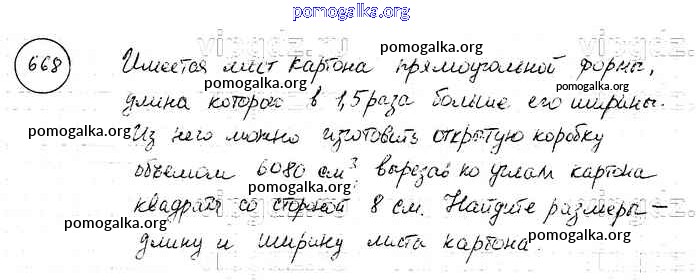 pomogalka.org
668 Имеется лист картона прямоугольной формы,
pomogalka.org
длина которого в 1,5 раза больше его ширины.
pomogalka.org
pomogalka.org
Из него можно изготовить открытую коробку
объемом 6080 см³, вырезав по углам картона
pomogalka.org
квадраты со стороной 8 см. Найдите размеры –
pomogalka.org
длину и ширину листа картона.
pomogalka.org